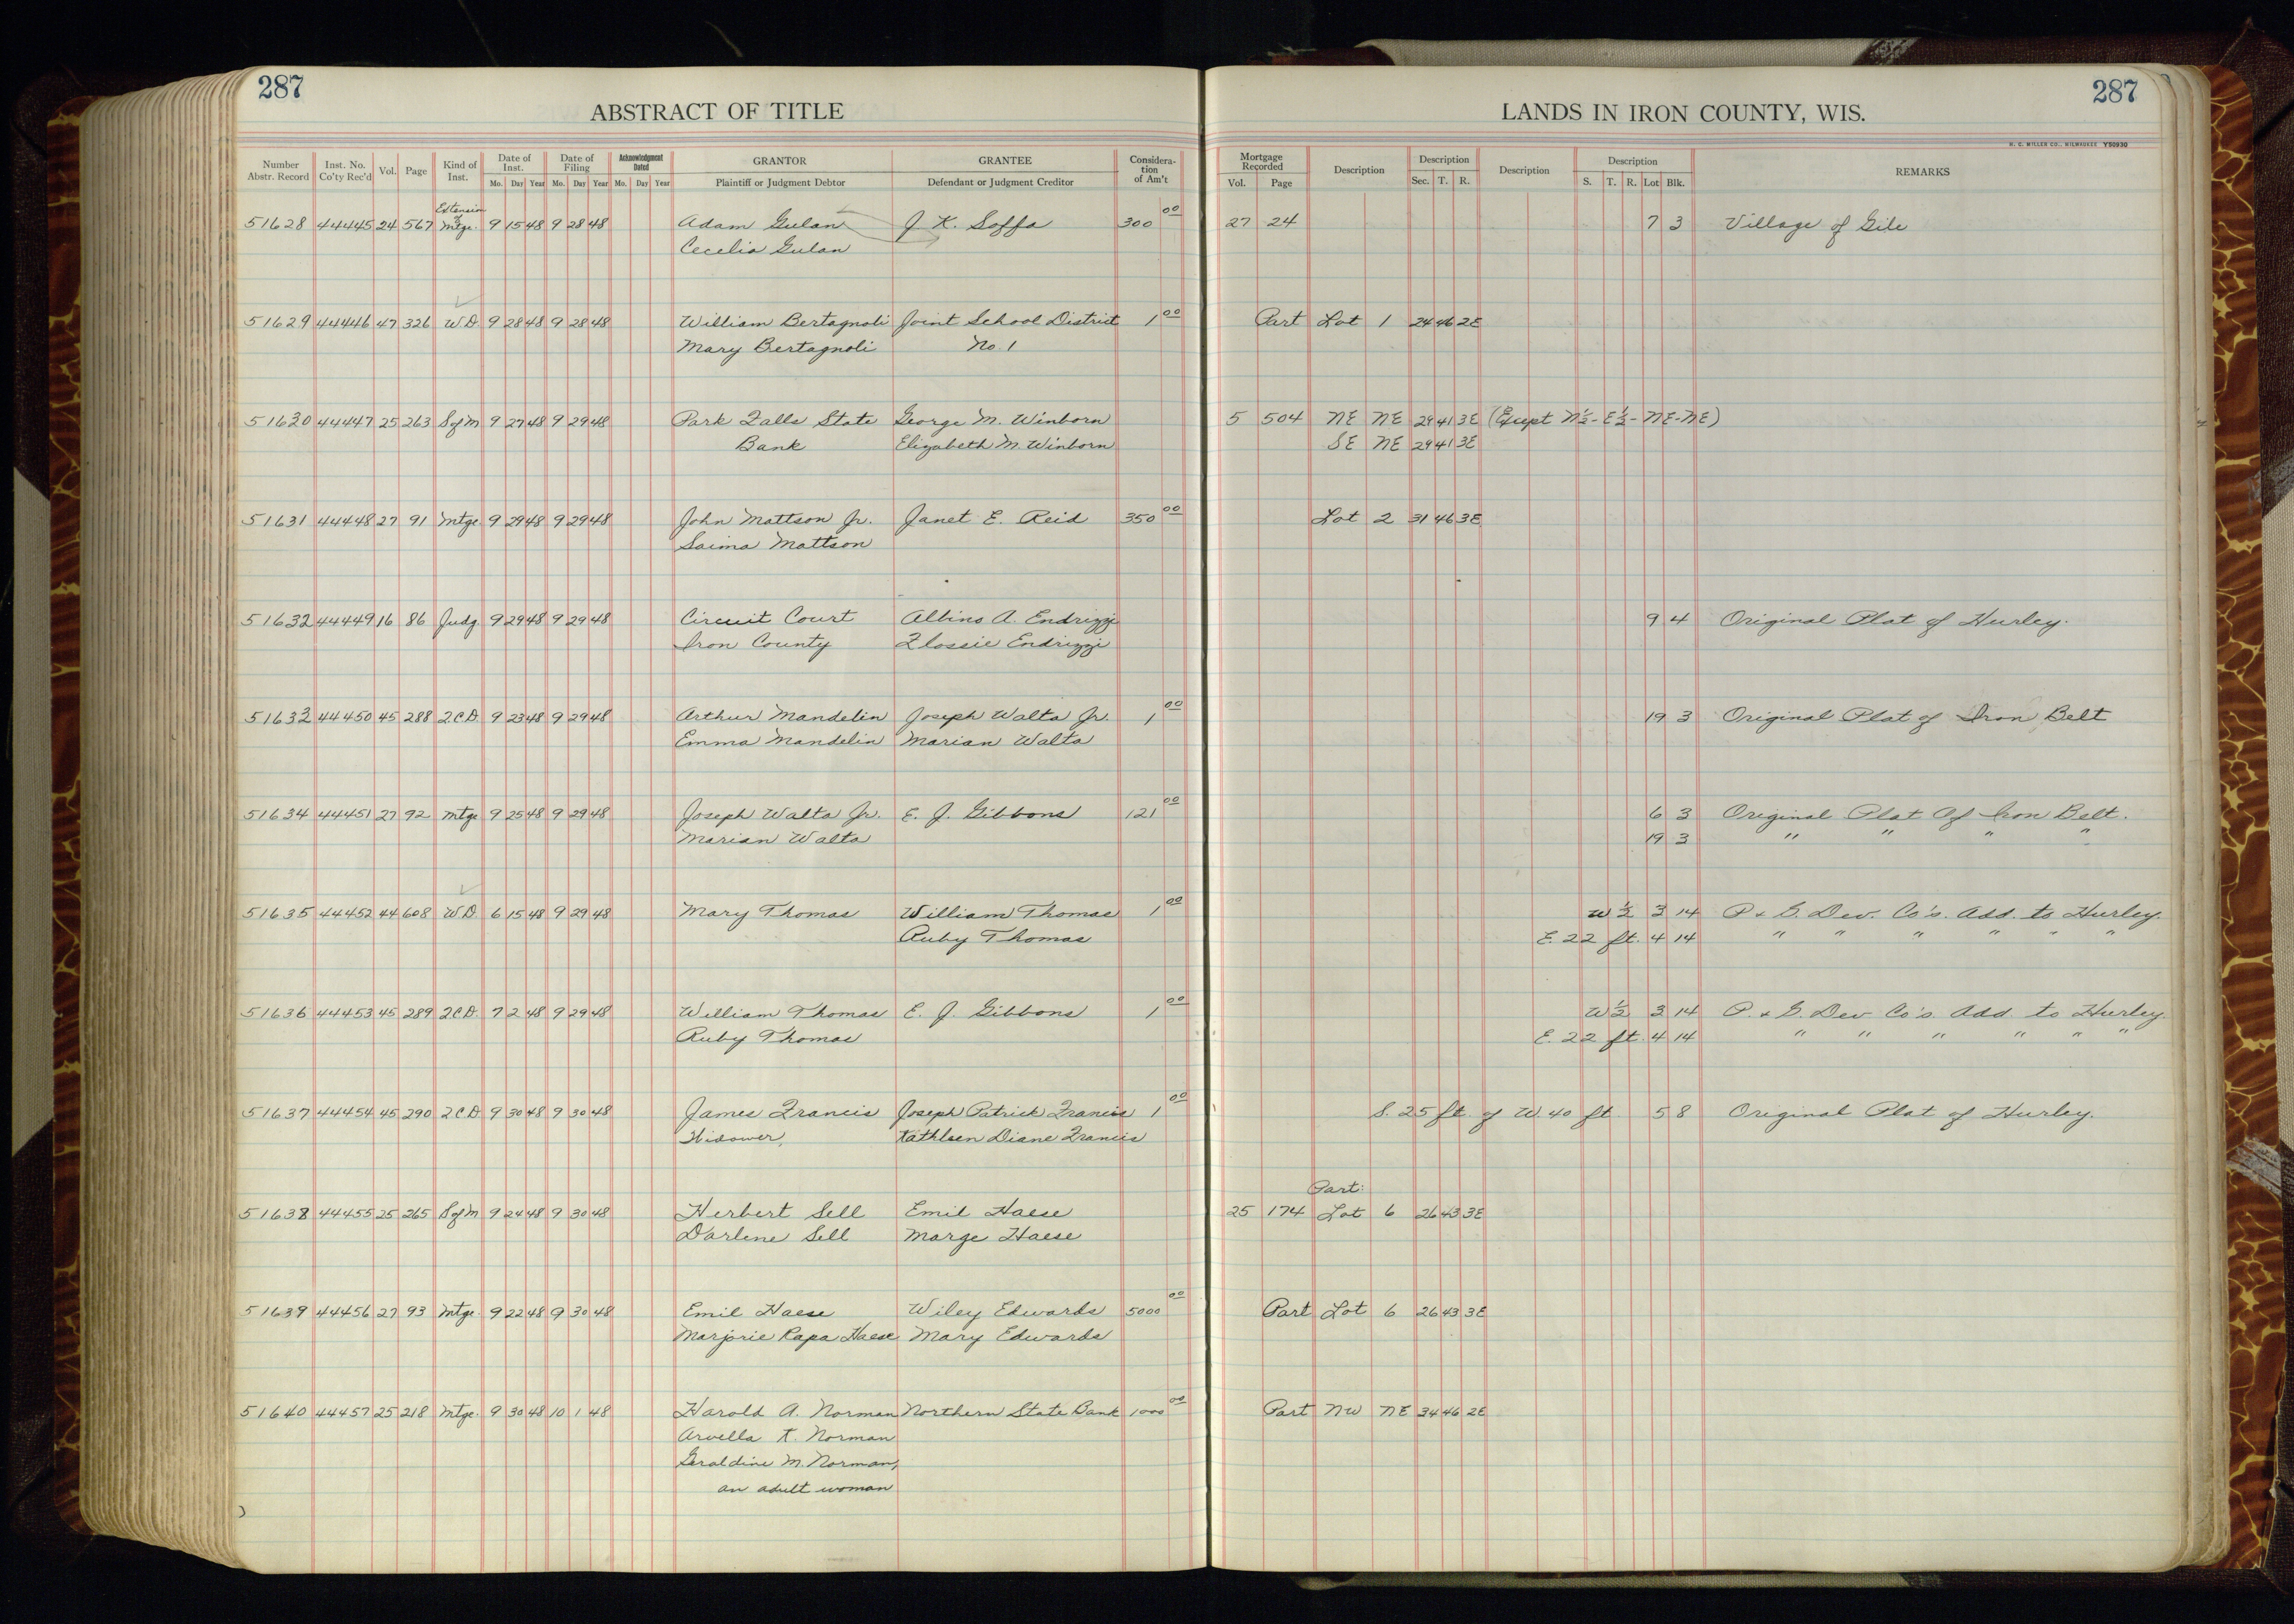 287
287
ABSTRACT OF TITLE
LANDS IN IRON COUNTY, WIS.
H. C. MILLER CO., MILWAUKEE Y50930
Number Abstr. Record Inst. No. Co'ty Rec'd Vol. Page Kind of Inst. Date of Inst. Mo. Day Year Date of Filing Mo. Day Year Acknowledgment Dated Mo. Day Year GRANTOR Plaintiff or Judgment Debtor GRANTEE Defendant or Judgment Creditor Considera-tion of Am't Mortgage Recorded Vol. Page Description Description Sec. T. R. Description Description S. T. R. Lot Blk. REMARKS
Extension of
51628 44445 24 567 Mtge. 9 15 48 9 28 48 Adam Gulan J. K. Soffa 300 00 27 24 7 3 Village of Gile
Cecelia Gulan
51629 44446 47 326 W.D. 9 28 48 9 28 48 William Bertagnoli Joint School District 1 00 Part Lot 1 24 46 2E
Mary Bertagnoli No. 1
51630 44447 25 263 S of M 9 27 48 9 29 48 Park Falls State George M. Winborn 5 504 NE NE 29 41 3E (Except N½-E½-NE-NE)
Bank Elizabeth M. Winborn SE NE 29 41 3E
51631 44448 27 91 Mtge 9 29 48 9 29 48 John Mattson Jr. Janet E. Reid 350 00 Lot 2 31 46 3E
Saima Mattson
51632 44449 16 86 Judg. 9 29 48 9 29 48 Circuit Court Albino A. Endrizzi 9 4 Original Plat of Hurley.
Iron County Flossie Endrizzi
51633 44450 45 288 2.C.D. 9 23 48 9 29 48 Arthur Mandelin Joseph Walta Jr. 1 00 19 3 Original Plat of Iron Belt
Emma Mandelin Marian Walta
51634 44451 27 92 Mtge 9 25 48 9 29 48 Joseph Walta Jr. E. J. Gibbons 121 00 6 3 Original Plat Of Iron Belt.
Marian Walta 19 3 " " " "
51635 44452 44 608 W.D. 6 15 48 9 29 48 Mary Thomas William Thomas 1 00 W½ 3 14 P. & G. Dev. Co's. Add. to Hurley.
Ruby Thomas E. 22 ft. 4 14 " " " " " "
51636 44453 45 289 2.C.D. 7 2 48 9 29 48 William Thomas E. J. Gibbons 1 00 W½ 3 14 P. & G. Dev Co's. Add. to Hurley.
Ruby Thomas E. 22 ft. 4 14 " " " " " "
51637 44454 45 290 2.C.D. 9 30 48 9 30 48 James Francis Joseph Patrick Francis 1 00 S. 25 ft. of W. 40 ft. 5 8 Original Plat of Hurley.
Widower, Kathleen Diane Francis
Part:
51638 44455 25 265 S of M 9 24 48 9 30 48 Herbert Sell Emil Haese 25 174 Lot 6 26 43 3E
Darlene Sell Marge Haese
51639 44456 27 93 Mtge. 9 22 48 9 30 48 Emil Haese Wiley Edwards 5000 00 Part Lot 6 26 43 3E
Marjorie Rapa Haese Mary Edwards
51640 44457 25 218 Mtge. 9 30 48 10 1 48 Harold A. Norman Northern State Bank 1000 00 Part NW NE 34 46 2E
Arvella K. Norman
Geraldine M. Norman,
an adult woman